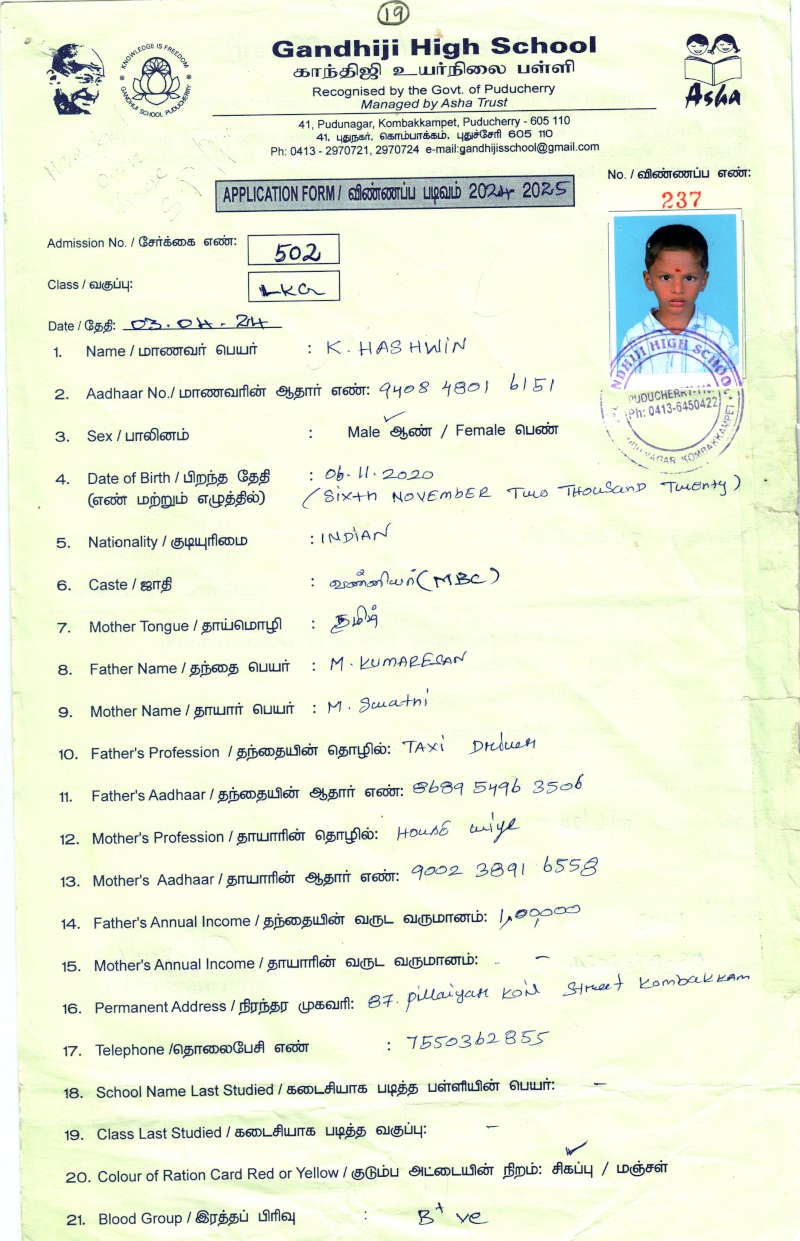 19
Gandhiji High School
காந்திஜி உயர்நிலை பள்ளி
Recognised by the Govt. of Puducherry
Managed by Asha Trust
KNOWLEDGE IS FREEDOM
GANDHIJI SCHOOL PUDUCHERRY
Asha
41, Pudunagar, Kombakkampet, Puducherry - 605 110
41, புதுநகர், கொம்பாக்கம், புதுச்சேரி 605 110
Ph: 0413 - 2970721, 2970724 e-mail:gandhijisschool@gmail.com
No. / விண்ணப்ப எண்:
237
APPLICATION FORM / விண்ணப்ப படிவம் 2024 - 2025
Admission No. / சேர்க்கை எண்: 502
Class / வகுப்பு: LKG
Date / தேதி: 03.04.24
1. Name / மாணவர் பெயர் : K. HASHWIN
2. Aadhaar No./ மாணவரின் ஆதார் எண்: 9408 4801 6151
3. Sex / பாலினம் : Male ஆண் / Female பெண்
4. Date of Birth / பிறந்த தேதி : 06.11.2020
(எண் மற்றும் எழுத்தில்) (Sixth NOVEMBER Two THOUSAND Twenty)
5. Nationality / குடியுரிமை : INDIAN
6. Caste / ஜாதி : வன்னியர் (MBC)
7. Mother Tongue / தாய்மொழி : தமிழ்
8. Father Name / தந்தை பெயர் : M. KUMARESAN
9. Mother Name / தாயார் பெயர் : M. Swathi
10. Father's Profession / தந்தையின் தொழில்: TAXI Driver
11. Father's Aadhaar / தந்தையின் ஆதார் எண்: 8689 5496 3506
12. Mother's Profession / தாயாரின் தொழில்: HOUSE wife
13. Mother's Aadhaar / தாயாரின் ஆதார் எண்: 9002 3891 6558
14. Father's Annual Income / தந்தையின் வருட வருமானம்: 1,00,000
15. Mother's Annual Income / தாயாரின் வருட வருமானம்: - -
16. Permanent Address / நிரந்தர முகவரி: 87. pillaiyar Koil Street Kombakkam
17. Telephone /தொலைபேசி எண் : 7550362855
18. School Name Last Studied / கடைசியாக படித்த பள்ளியின் பெயர்: -
19. Class Last Studied / கடைசியாக படித்த வகுப்பு: -
20. Colour of Ration Card Red or Yellow / குடும்ப அட்டையின் நிறம்: சிகப்பு / மஞ்சள்
21. Blood Group / இரத்தப் பிரிவு : B+ ve
NDHIJI HIGH SCHOOL
PUDUCHERRY-110.
Ph: 0413-6450422
NAGAR KOMBAKKAMPET